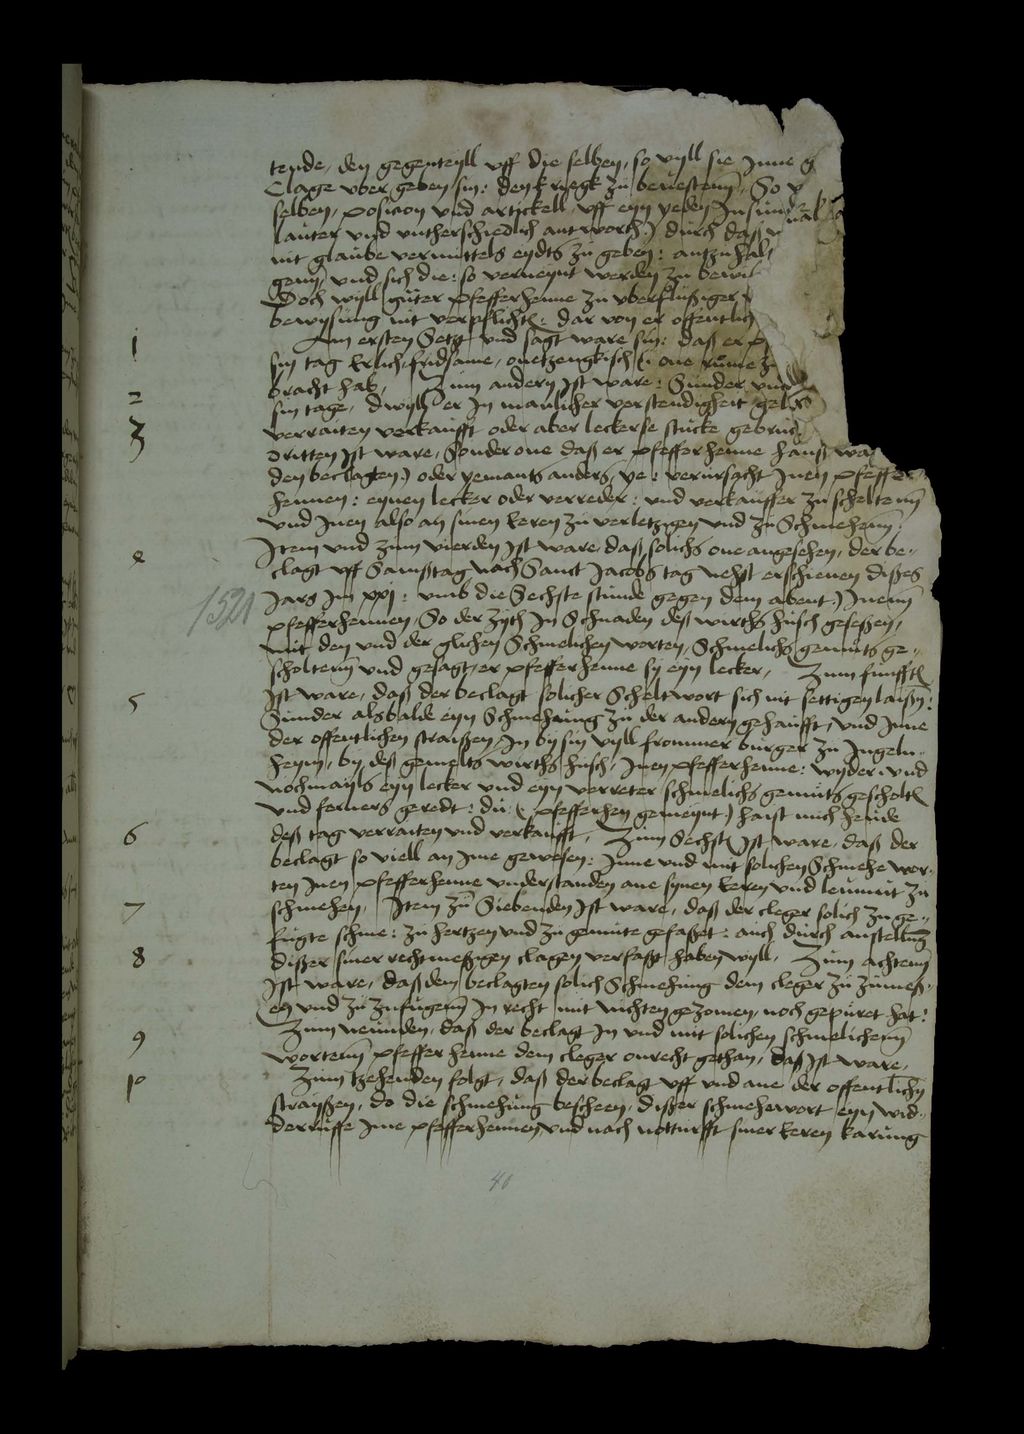 tende, den gegenteyll vff die selben, so vyll sie Inne g
Clage vber geben sin: den kriegk zu beuestenn, So v
selben, posicion vnd artickell, vff eyn yeden Insund
lauter vnd vntherschiedlich antworth) durch daß w
nit glaube vermittels eydts zu geben: antzuhalt
genn, vnd sich die: so verneynt werden zu bewi
Doch wyll guter pfefferhenne zu vberflußiger
bewysung nit verpflicht: dar von er offentlich
1 Am ersten Setzt vnd sagt ware sin: daß er
sin tag Erlich, fridsame, onetzengkisch (: one rume z
2 bracht hab, Zum andern Ist ware: Sunder vn
sin tage, dwyll er In manlicher verstendigheit gel
3 verraiten verkaufft oder aber leckerse stucke gebruch
Dritten Ist ware, Sonder one daß er pfefferhenne hanß wa
den beclagten) oder yemants anders, ye: verursacht Inen pfeffer
hennen: eynen lecker oder verreder: vnd verkauffer zu scheltenn
vnd Inen also an sinen keren zu verletzigen vnd zu Schmehenn:
4 Item vnd zum vierden Ist ware, daß solichs one angesehen, der be-
clagt vff Samßtag nach Sanct Jacobs tag nehst erschienen dißes
1521 Jars Im xxj: vmb die Sechste stunde gegen dem abent) Inenn
pfefferhennen, So der zyth In Schnaden deß wirths husch geseßen,
mit den vnd der glichen Schmelichen worten, Schmelichs gemuts ge-
scholtenn vnd gesagt, er pfefferhenne sy eyn lecker, Zum funfften
5 Ist ware, daß der beclagt solicher Scheltwort sich nit settigen laißen:
Sunder alsbalde eyn Schmehung zu der andern gehaufft, vnd Inne
der offentlichen straißen In bysin vyll frommer burger zu Ingeln-
heym, by deß gemelts wirths husch, Inen pfefferhenne: wyder vnd
nochmayls eyn lecker vnd eyn verreter schmelichs gemuts gescholt
vnd ferners geredt: du (: pfefferhen gemeynt) haist mich heude
6 deß tag verraiten vnd verkaufft, Zum Sechsten Ist ware, daß der
beclagt so viell an Ime gewesen: Inne vnd mit solichen Schmehe wor-
ten Inen pfefferhenne vnderstanden ane synen keren vnd leumut zu
7 schmehen, Item zu Siebenden Ist ware, daß der cleger solich zuge-
fugte schme: zu hertzen vnd zu gemute gefaßet: auch durch anstellung
8 dißer siner rechtmeßigen clagen verfaßt haben wyll, Zum achtenn
Ist ware, daß den beclagten solich Schmehung dem cleger zu zumeß-
en vnd zu zufugenn In recht mit nichten gezomen, noch gepuret hat:
9 Zum neunden, daß der beclagt In vnd mit solichen schmelichenn
wortenn pfefferhenne dem cleger onrecht gethan, das Ist ware,
10 Zum tzehenden folgt, daß der beclagt vff vnd ane der offentlichen
straißen, do die schmehung bescheen, dißer schmehewort eyn wid-
derruffe Ime pfefferhennen, vnd nach notturfft siner keren karung
40